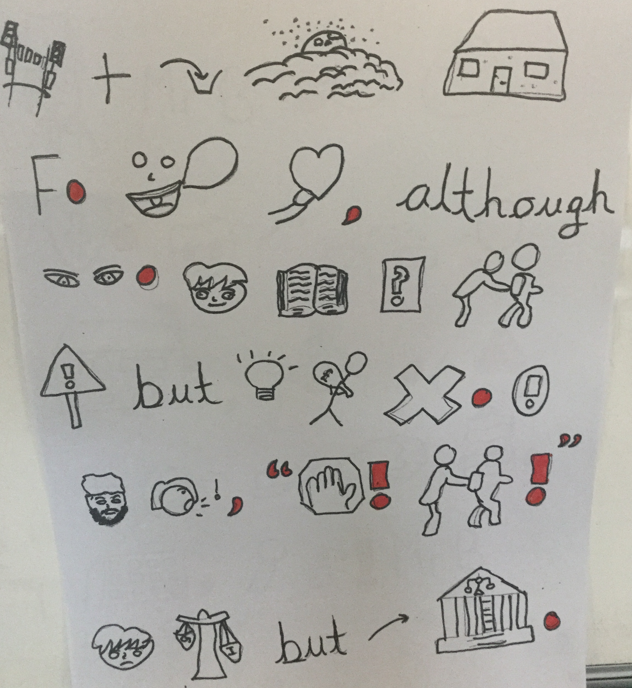 +
F. , although
. ?
! but . !
! , “ ! ! ”
but .